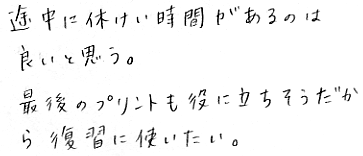 途中に休けい時間があるのは
良いと思う。
最後のプリントも役に立ちそうだか
ら復習に使いたい。